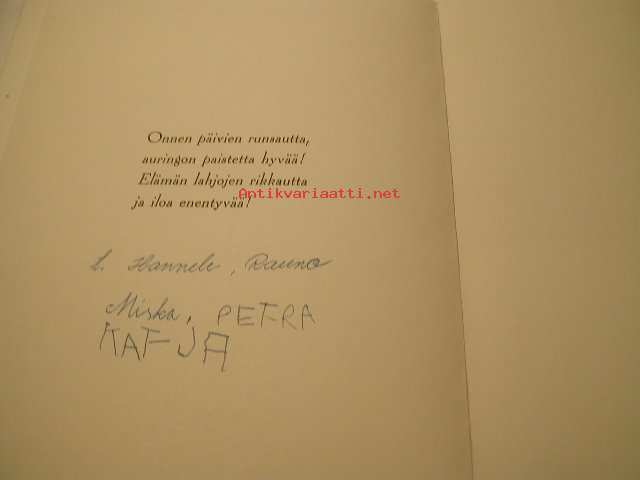 Onnen päivien runsautta,
auringon paistetta hyvää!
Elämän lahjojen rikkautta
Antikvariaatti.net
ja iloa enentyvää!
t. Hannele, Rauno
Miska, PETRA
KATJA